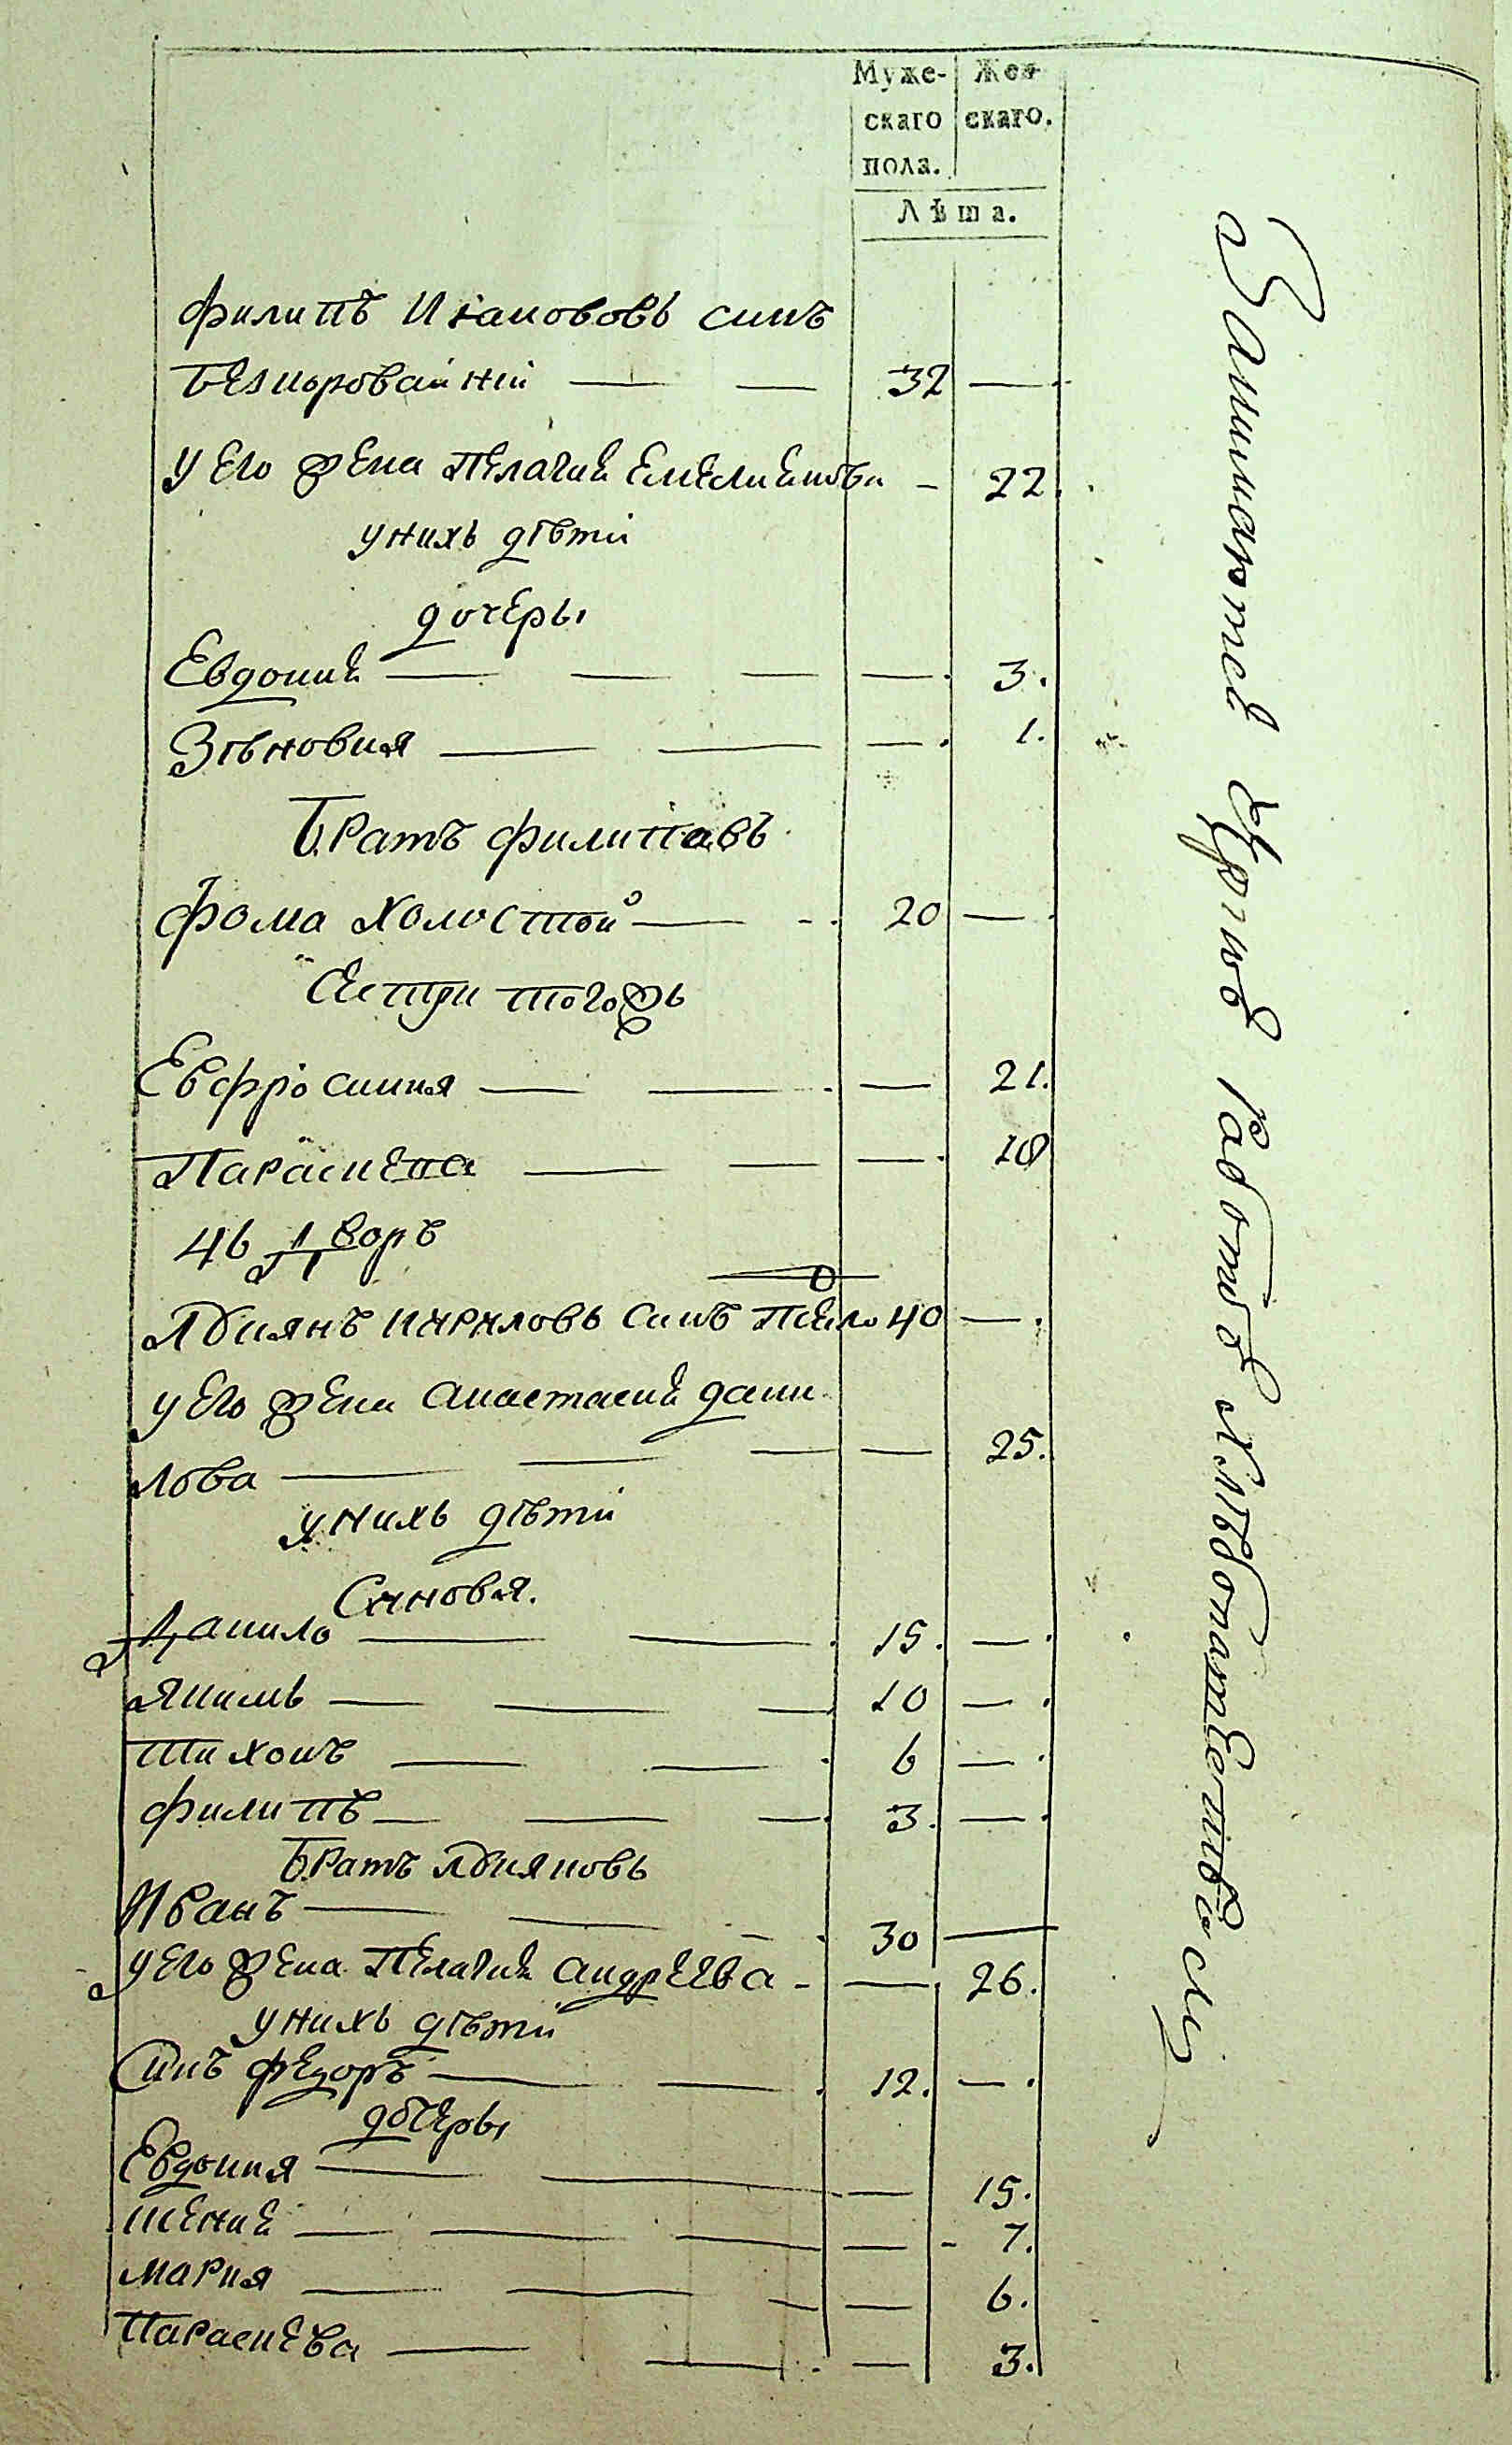 Муже-
скаго
пола.
Жен
скаго.
Лѣта.
Филипъ Иkановъ синъ
Безкоровайнiй — — 32 —
у Его жена Пелагия Емелиянова - 22.
унихъ дѣти
дочеры
Евдокия — — — — 3.
Зѣновия — — — 1.
Братъ Филиповъ
Фома холостой — 20 —
Систри тогожъ
Евфросиния — — — 21.
Параскева — — — 18
46 Дворъ
Адиянъ Кириловъ Синъ 40 —
у Его жена Анастасия Дани
лова — — — — 25.
унихъ дѣти
Синовья.
Данило — — 15. —
Якимъ — — — 10 —
Тихонъ — — 6 —
Филипъ — — — 3. —
Братъ Адияновъ
Иванъ — — - 30 —
у Его жена Пелагия Андреева - — 26.
унихъ дѣти
Синъ Федоръ — — 12. —
дочеры
Евдокия — — — 15.
Ксения — — — — 7.
Мария — — — — 6.
Параскева — — — 3.
Занимаются
Работою Хлѣбопашественной